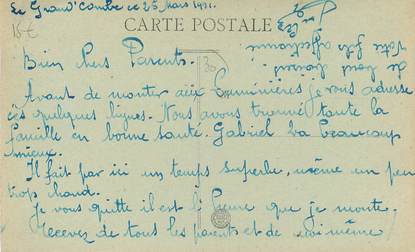 La Grand'Combe ce 25 Mars 1931.
CARTE POSTALE
15€
30
Bien Chers Parents.
Avant de monter aux je vais adresse
ces quelques lignes. Nous avons trouvé toute la
famille en bonne santé. Gabriel va beaucoup
mieux.
Il fait par ici un temps superbe, même un peu
trop chaud.
Je vous quitte il est l'heure que je monte,
Recevez de tous les parents et de moi même
votre fils affectionné